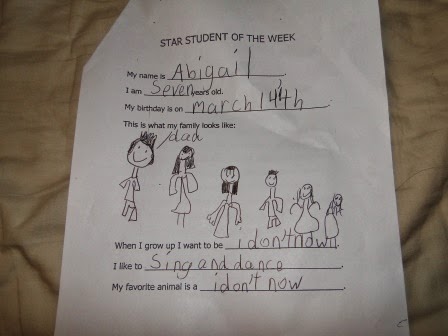 STAR STUDENT OF THE WEEK
My name is Abigail.
I am Seven years old.
My birthday is on march 14th.
This is what my family looks like:
dad
When I grow up I want to be i don't nown.
I like to Sing and dance.
My favorite animal is a i don't now.